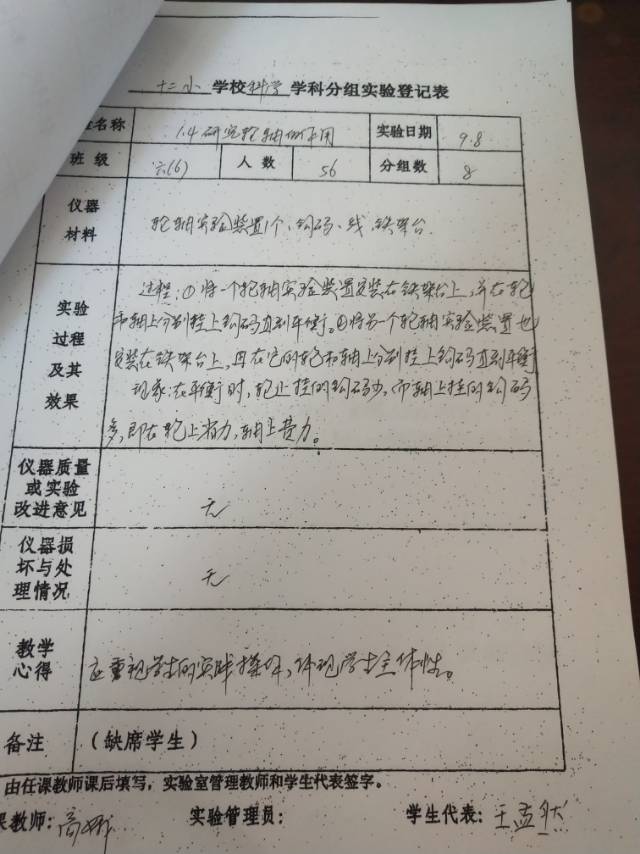 十二小 学校 科学 学科分组实验登记表
验名称 1.4研究轮轴的作用 实验日期 9.8
班级 六(6) 人数 56 分组数 8
仪器
材料
轮轴实验装置1个、钩码、线、铁架台.
实验
过程
及其
效果
过程:①将一个轮轴实验装置安装在铁架台上,并在轮
和轴上分别挂上钩码直到平衡。②将另一个轮轴实验装置也
安装在铁架台上,再在它的轮和轴上分别挂上钩码直到平衡
现象:在平衡时,轮上挂的钩码少,而轴上挂的钩码
多,即在轮上省力,轴上费力。
仪器质量
或实验
改进意见
无
仪器损
坏与处
理情况
无
教学
心得
应重视学生的实践操作,体现学生主体性。
备注 (缺席学生)
由任课教师课后填写,实验室管理教师和学生代表签字。
课教师:高娜 实验管理员: 学生代表:王孟然